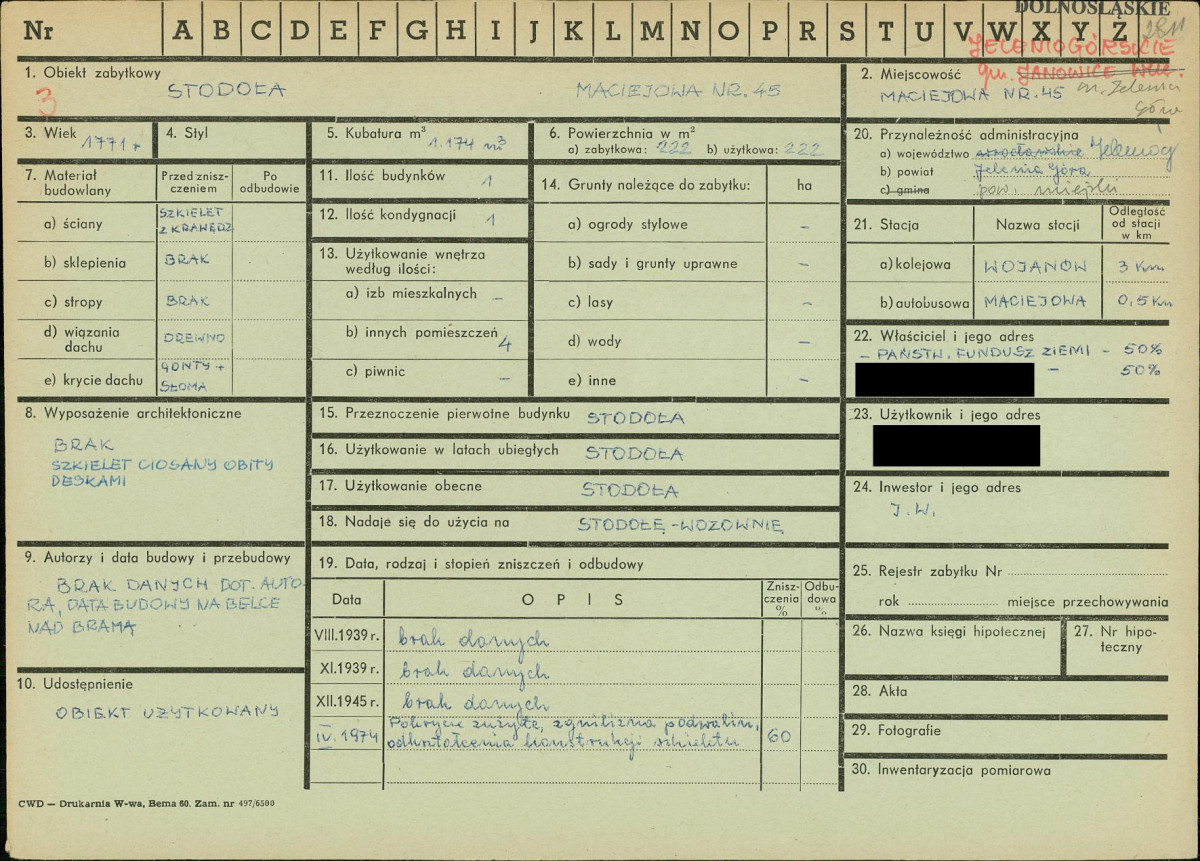 DOLNOŚLĄSKIE
Nr A B C D E F G H I J K L M N O P R S T U V W X Y Z
JELENIOGÓRSKIE
gm. JANOWICE WLK.
1. Obiekt zabytkowy STODOŁA MACIEJOWA NR. 45
3
2. Miejscowość
MACIEJOWA NR. 45 m. Jelenia
Góra
3. Wiek 1771 r
4. Styl
5. Kubatura m³ 1.174 m³
6. Powierzchnia w m²
a) zabytkowa: 222 b) użytkowa: 222
7. Materiał budowlany
Przed zniszczeniem
Po odbudowie
a) ściany SZKIELET
Z KRAWĘDZ
b) sklepienia BRAK
c) stropy BRAK
d) wiązania dachu DREWNO
e) krycie dachu GONTY +
SŁOMA
8. Wyposażenie architektoniczne
BRAK
SZKIELET CIOSANY OBITY
DESKAMI
9. Autorzy i data budowy i przebudowy
BRAK DANYCH DOT. AUTO-
RA, DATA BUDOWY NA BELCE
NAD BRAMĄ
10. Udostępnienie
OBIEKT UŻYTKOWANY
11. Ilość budynków 1
12. Ilość kondygnacji 1
13. Użytkowanie wnętrza
według ilości:
a) izb mieszkalnych –
b) innych pomieszczeń 4
c) piwnic –
14. Grunty należące do zabytku: ha
a) ogrody stylowe –
b) sady i grunty uprawne –
c) lasy –
d) wody –
e) inne –
15. Przeznoczenie pierwotne budynku STODOŁA
16. Użytkowanie w latach ubiegłych STODOŁA
17. Użytkowanie obecne STODOŁA
18. Nadaje się do użycia na STODOŁĘ - WOZOWNIĘ
19. Data, rodzaj i stopień zniszczeń i odbudowy
Data OPIS Zniszczenia % Odbudowa %
VIII.1939 r. brak danych
XI.1939 r. brak danych
XII.1945 r. brak danych
IV. 1974 Pokrycie zużyte, zgnilizna podwalin,
odkształcenia konstrukcji szkieletu 60
20. Przynależność administracyjna
a) województwo wrocławskie Jeleniog
b) powiat Jelenia Góra
c) gmina pow. miejski
21. Stacja Nazwa stacji Odległość od stacji w km
a) kolejowa WOJANÓW 3 Km
b) autobusowa MACIEJOWA 0,5 Km
22. Właściciel i jego adres
– PAŃSTW. FUNDUSZ ZIEMI – 50%
– 50%
23. Użytkownik i jego adres
24. Inwestor i jego adres
J.W.
25. Rejestr zabytku Nr
rok miejsce przechowywania
26. Nazwa księgi hipotecznej
27. Nr hipoteczny
28. Akta
29. Fotografie
30. Inwentaryzacja pomiarowa
CWD — Drukarnia W-wa, Bema 60. Zam. nr 497/6500